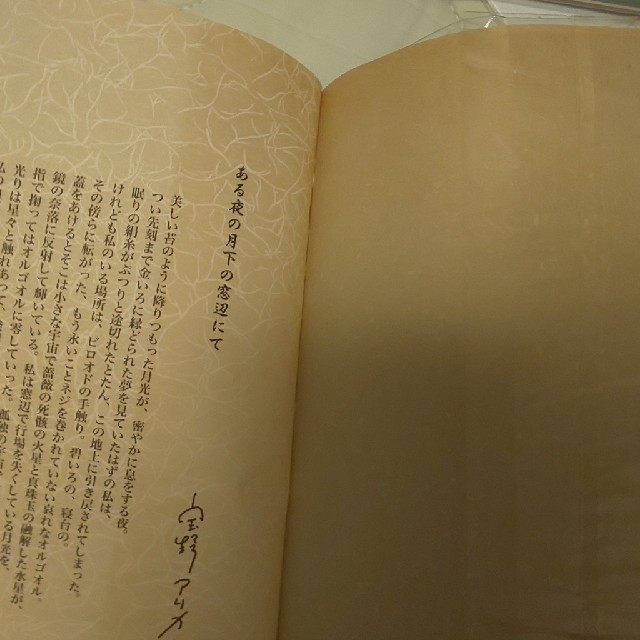 ある夜の月下の窓辺にて
美しい苔のように降りつもった月星が、密やかに息をする夜。
つい先刻まで金いろに縁どられた夢を見ていたはずの私は、
眠りの絹糸がぷつりと途切れたとたん、この地上に引き戻されてしまった。
けれども私のいる場所は、ビロオドの手触り。碧いろの、寝台の。
その傍らに転がった、もう永いことネジを巻かれていない哀れなオルゴオル。
蓋をあけるとそこは小さな宇宙で薔薇の死骸の火星と真珠玉の融解した水星が、
鏡の奈落に反射して輝いている。私は窓辺で行場を失くしている月光を、
指で掬ってはオルゴオルに零していった。
光りは星々と触れあって、
宝野アリカ